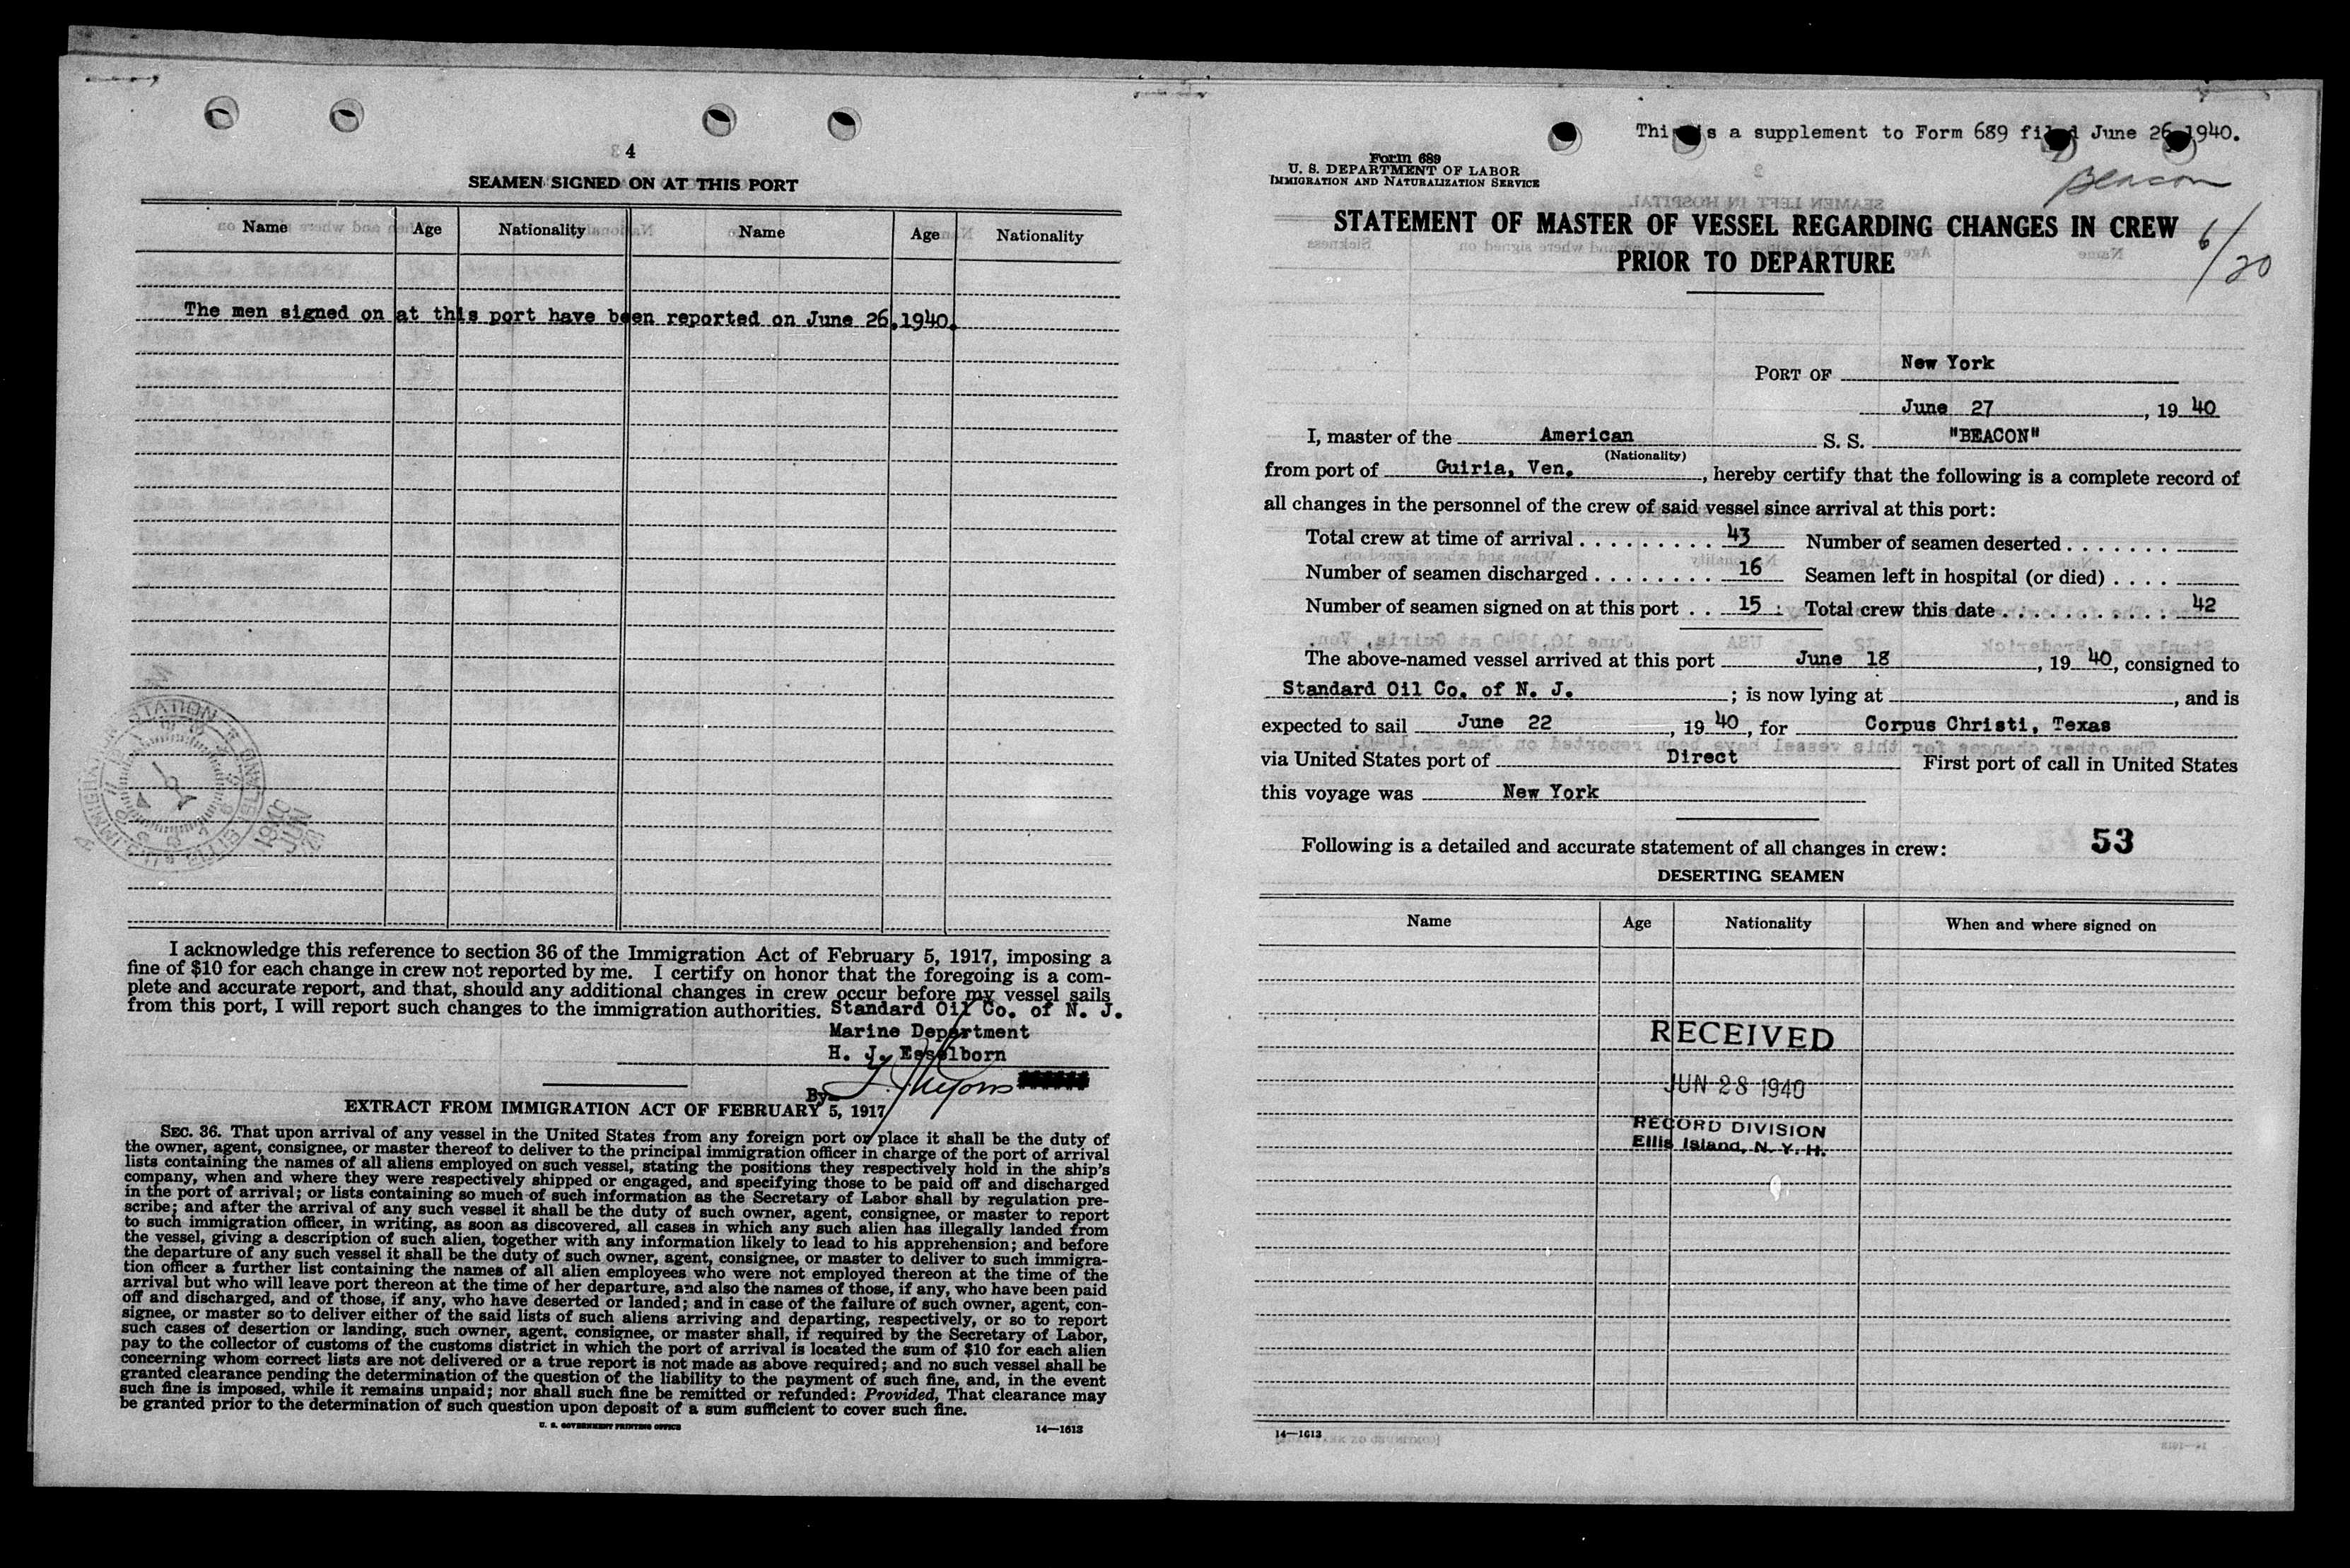 4
SEAMEN SIGNED ON AT THIS PORT
Name Age Nationality Name Age Nationality
The men signed on at this port have been reported on June 26, 1940.
I acknowledge this reference to section 36 of the Immigration Act of February 5, 1917, imposing a
fine of $10 for each change in crew not reported by me. I certify on honor that the foregoing is a com-
plete and accurate report, and that, should any additional changes in crew occur before my vessel sails
from this port, I will report such changes to the immigration authorities. Standard Oil Co. of N. J.
Marine Department
H. J. Esselborn
By
EXTRACT FROM IMMIGRATION ACT OF FEBRUARY 5, 1917
SEC. 36. That upon arrival of any vessel in the United States from any foreign port or place it shall be the duty of
the owner, agent, consignee, or master thereof to deliver to the principal immigration officer in charge of the port of arrival
lists containing the names of all aliens employed on such vessel, stating the positions they respectively hold in the ship's
company, when and where they were respectively shipped or engaged, and specifying those to be paid off and discharged
in the port of arrival; or lists containing so much of such information as the Secretary of Labor shall by regulation pre-
scribe; and after the arrival of any such vessel it shall be the duty of such owner, agent, consignee, or master to report
to such immigration officer, in writing, as soon as discovered, all cases in which any such alien has illegally landed from
the vessel, giving a description of such alien, together with any information likely to lead to his apprehension; and before
the departure of any such vessel it shall be the duty of such owner, agent, consignee, or master to deliver to such immigra-
tion officer a further list containing the names of all alien employees who were not employed thereon at the time of the
arrival but who will leave port thereon at the time of her departure, and also the names of those, if any, who have been paid
off and discharged, and of those, if any, who have deserted or landed; and in case of the failure of such owner, agent, con-
signee, or master so to deliver either of the said lists of such aliens arriving and departing, respectively, or so to report
such cases of desertion or landing, such owner, agent, consignee, or master shall, if required by the Secretary of Labor,
pay to the collector of customs of the customs district in which the port of arrival is located the sum of $10 for each alien
concerning whom correct lists are not delivered or a true report is not made as above required; and no such vessel shall be
granted clearance pending the determination of the question of the liability to the payment of such fine, and, in the event
such fine is imposed, while it remains unpaid; nor shall such fine be remitted or refunded: Provided, That clearance may
be granted prior to the determination of such question upon deposit of a sum sufficient to cover such fine.
U. S. GOVERNMENT PRINTING OFFICE 14—1613
This is a supplement to Form 689 filed June 26, 1940.
Form 689
U. S. DEPARTMENT OF LABOR
IMMIGRATION AND NATURALIZATION SERVICE
Beacon
6/20
STATEMENT OF MASTER OF VESSEL REGARDING CHANGES IN CREW
PRIOR TO DEPARTURE
PORT OF New York
June 27, 19 40
I, master of the American S. S. "BEACON"
(Nationality)
from port of Guiria, Ven., hereby certify that the following is a complete record of
all changes in the personnel of the crew of said vessel since arrival at this port:
Total crew at time of arrival . . . . . . . . . 43 Number of seamen deserted . . . . . . .
Number of seamen discharged . . . . . . . . 16 Seamen left in hospital (or died) . . . .
Number of seamen signed on at this port . . 15 Total crew this date . . . . . . . . . . . 42
The above-named vessel arrived at this port June 18, 19 40, consigned to
Standard Oil Co. of N. J.; is now lying at , and is
expected to sail June 22, 19 40, for Corpus Christi, Texas
via United States port of Direct First port of call in United States
this voyage was New York
Following is a detailed and accurate statement of all changes in crew: 53
DESERTING SEAMEN
Name Age Nationality When and where signed on
RECEIVED
JUN 28 1940
RECORD DIVISION
Ellis Island, N. Y. H.
14—1613